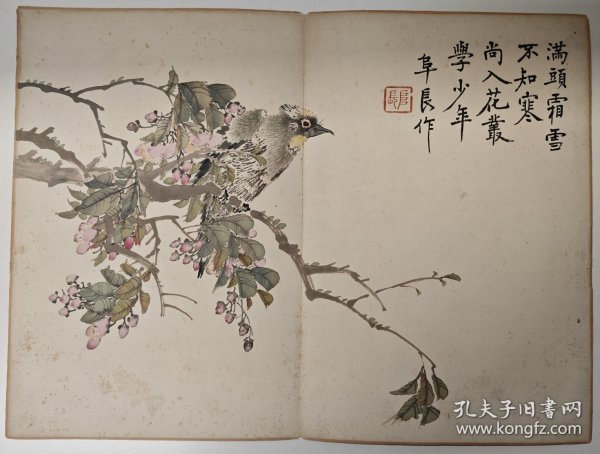 满頭霜雪
不知寒
尚入花叢
學少年
阜長作
孔夫子旧書网
www.kongfz.com